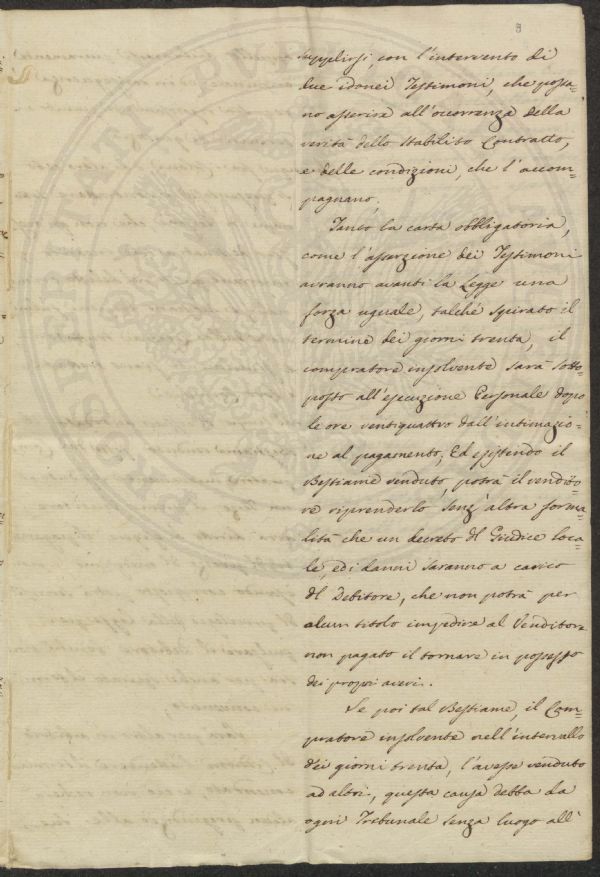 8
supplirsi, con l'intervento di
due idonei Testimoni, che possa=
no asserire all'occorrenza della
verità dello stabilito Contratto,
e delle condizioni, che l'accom=
pagnano.
Tanto la carta obbligatoria,
come l'asserzione dei Testimoni
avranno avanti la Legge una
forza uguale, talché spirato il
termine dei giorni trenta, il
compratore insolvente sarà sotto
posto all'esecuzione Personale dopo
le ore ventiquattro dall'intimazio=
ne al pagamento, Ed esistendo il
Bestiame venduto, potrà il vendito=
re riprenderlo senz'altra forma=
lità che un decreto del Giudice loca=
le, ed i danni saranno a carico
del Debitore, che non potrà per
alcun titolo impedire al Venditore
non pagato il tornare in possesso
dei propri averi.
Se poi tal Bestiame, il Com=
pratore insolvente nell'intervallo
dei giorni trenta, l'avesse venduto
ad altri, questa causa debba da
ogni Tribunale senza luogo all'